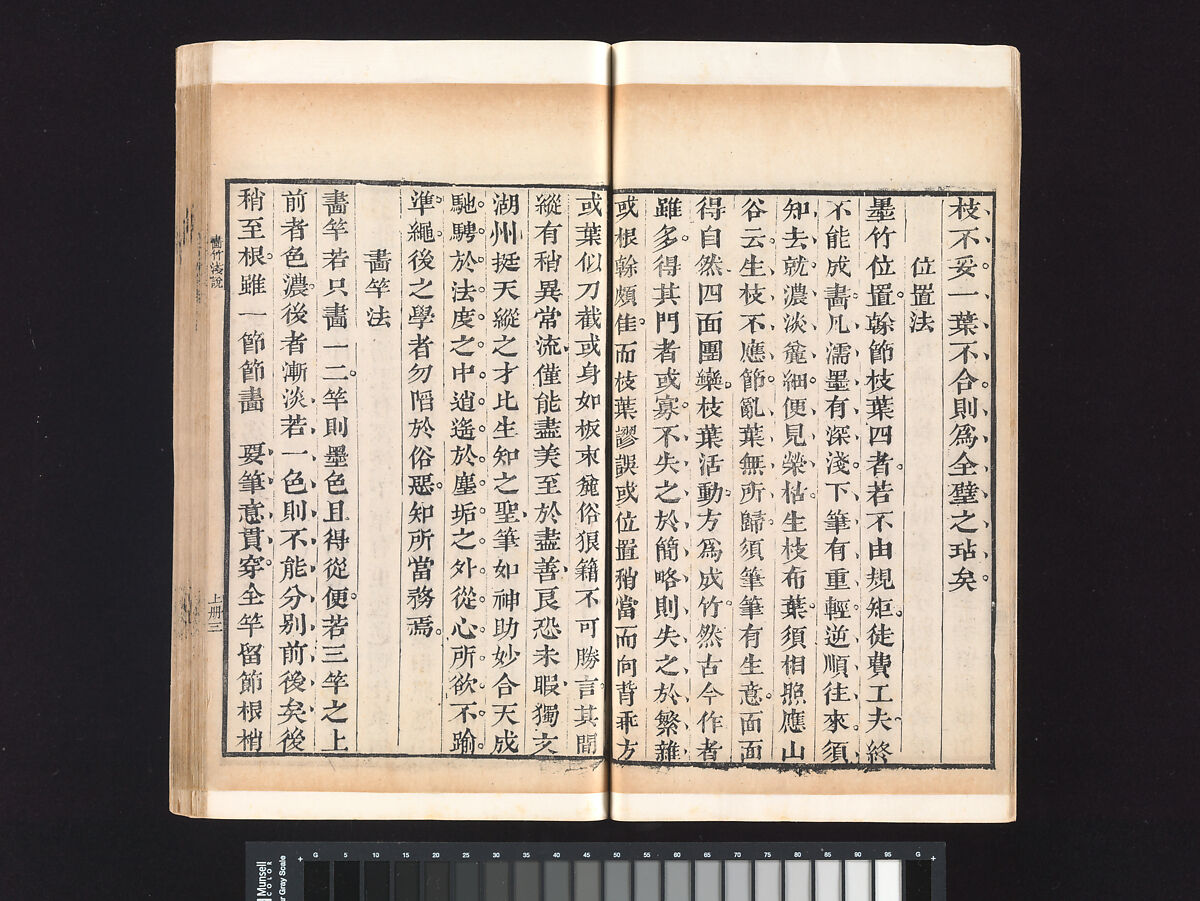 枝不妥一葉不合則爲全璧之玷矣
位置法
墨竹位置榦節枝葉四者若不由規矩徒費工夫終
不能成畵凡濡墨有深淺下筆有重輕逆順往來須
知去就濃淡麄細便見榮枯生枝布葉須相照應山
谷云生枝不應節亂葉無所歸須筆筆有生意面面
得自然四面團欒枝葉活動方爲成竹然古今作者
雖多得其門者或寡不失之於簡略則失之於繁雜
或根榦頗佳而枝葉謬誤或位置稍當而向背乖方
或葉似刀截或身如板束麄俗狼籍不可勝言其間
縱有稍異常流僅能盡美至於盡善良恐未暇獨文
湖州挺天縱之才比生知之聖筆如神助妙合天成
馳騁於法度之中逍遙於塵垢之外從心所欲不踰
準繩後之學者勿䧟於俗惡知所當務焉
畵竿法
畵竿若只畵一二竿則墨色且得從便若三竿之上
前者色濃後者漸淡若一色則不能分別前後矣後
稍至根雖一節節畵要筆意貫穿全竿留節根梢
畵竹淺說
上册三
5 10 15 20 25 30 35 40 45 50 55 60 65 70 75 80 85 90 95
Munsell
COLOR
Gray Scale